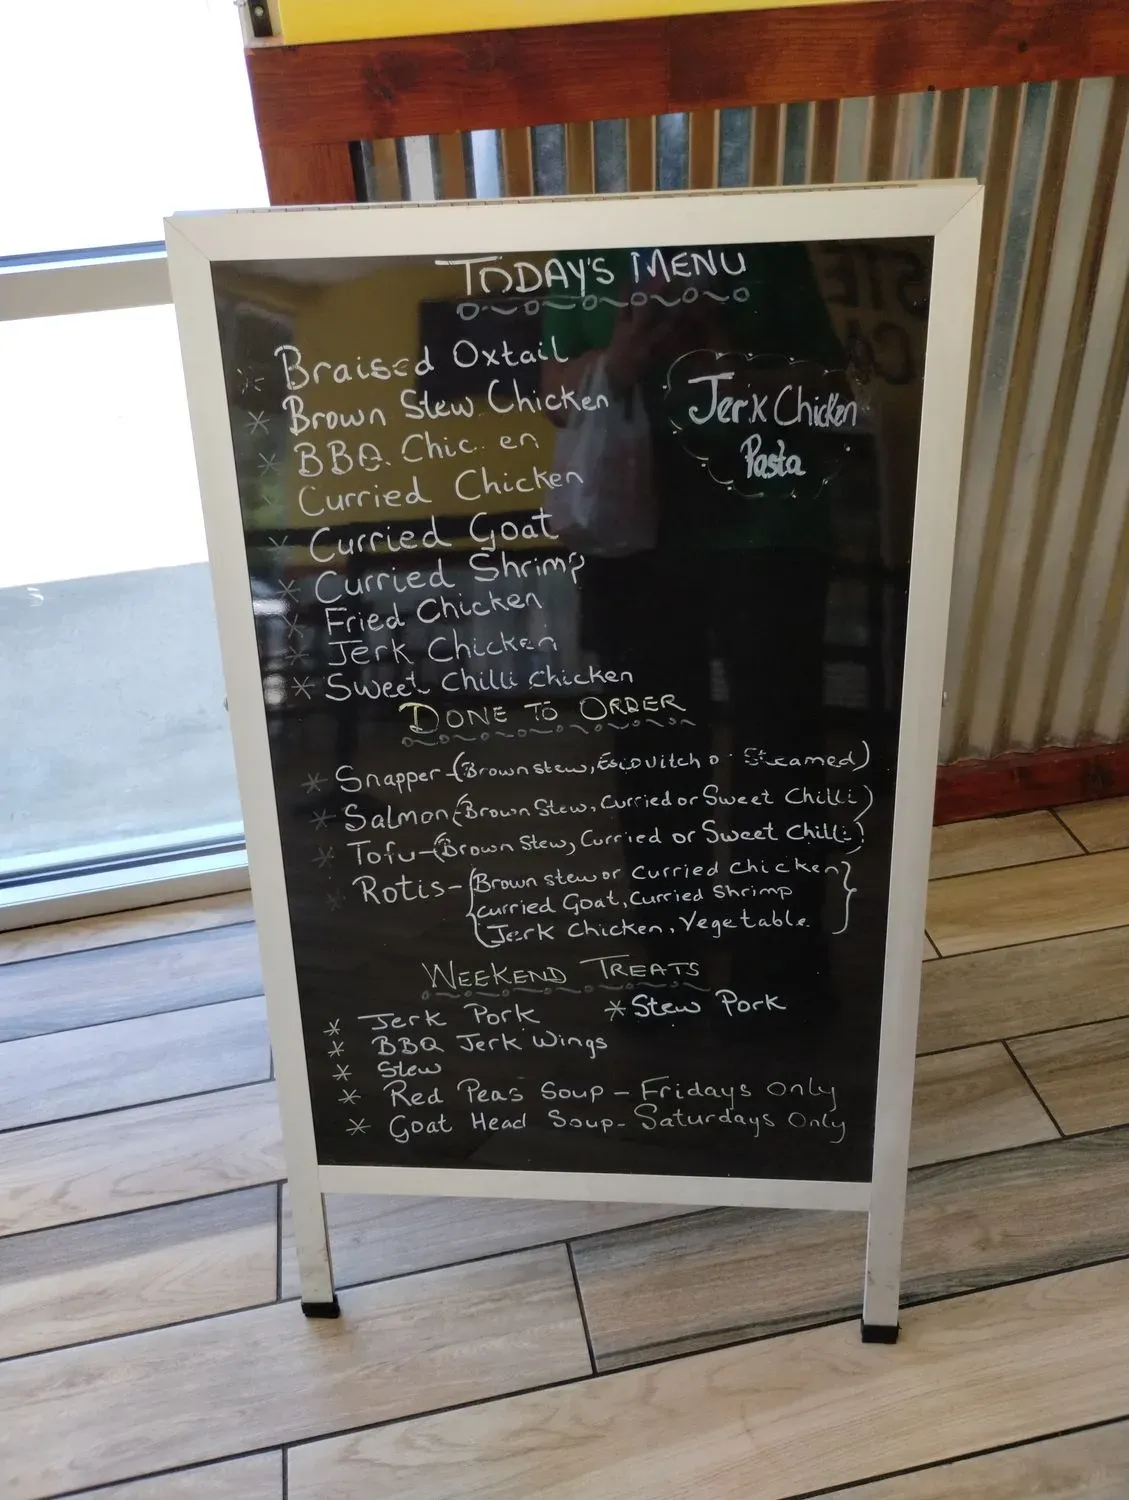 TODAY'S MENU
* Braised Oxtail
* Brown Stew Chicken
Jerk Chicken
Pasta
* BBQ Chic en
* Curried Chicken
* Curried Goat
* Curried Shrimp
* Fried Chicken
* Jerk Chicken
* Sweet Chilli Chicken
DONE TO ORDER
* Snapper-(Brown stew, Escovitch o Steamed)
* Salmon-(Brown Stew, Curried or Sweet Chilli)
* Tofu-(Brown Stew, Curried or Sweet Chilli)
* Rotis-{Brown stew or Curried Chicken
Curried Goat, Curried Shrimp
Jerk Chicken, Vegetable}
WEEKEND TREATS
* Jerk Pork *Stew Pork
* BBQ Jerk Wings
* Stew
* Red Peas Soup - Fridays Only
* Goat Head Soup - Saturdays Only